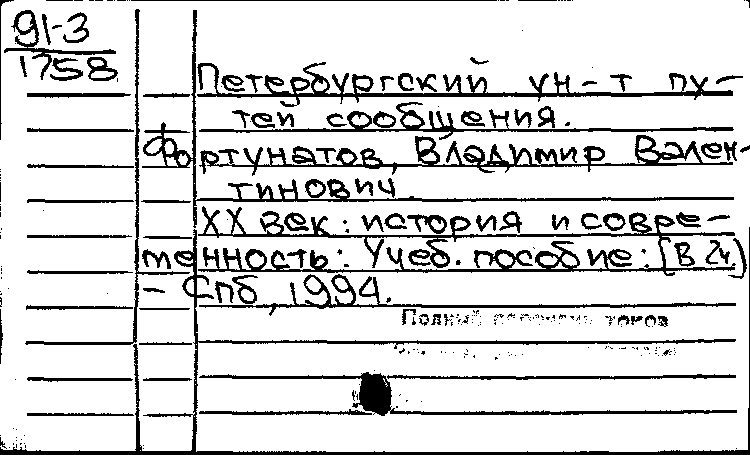 91-3
1758
Петербургский ун-т пу-
тей сообщения.
Фортунатов, Владимир Вален-
тинович
XX век: история и совре-
менность: Учеб. пособие: [В 2ч.]
- Спб, 1994.
Полный перечень томов